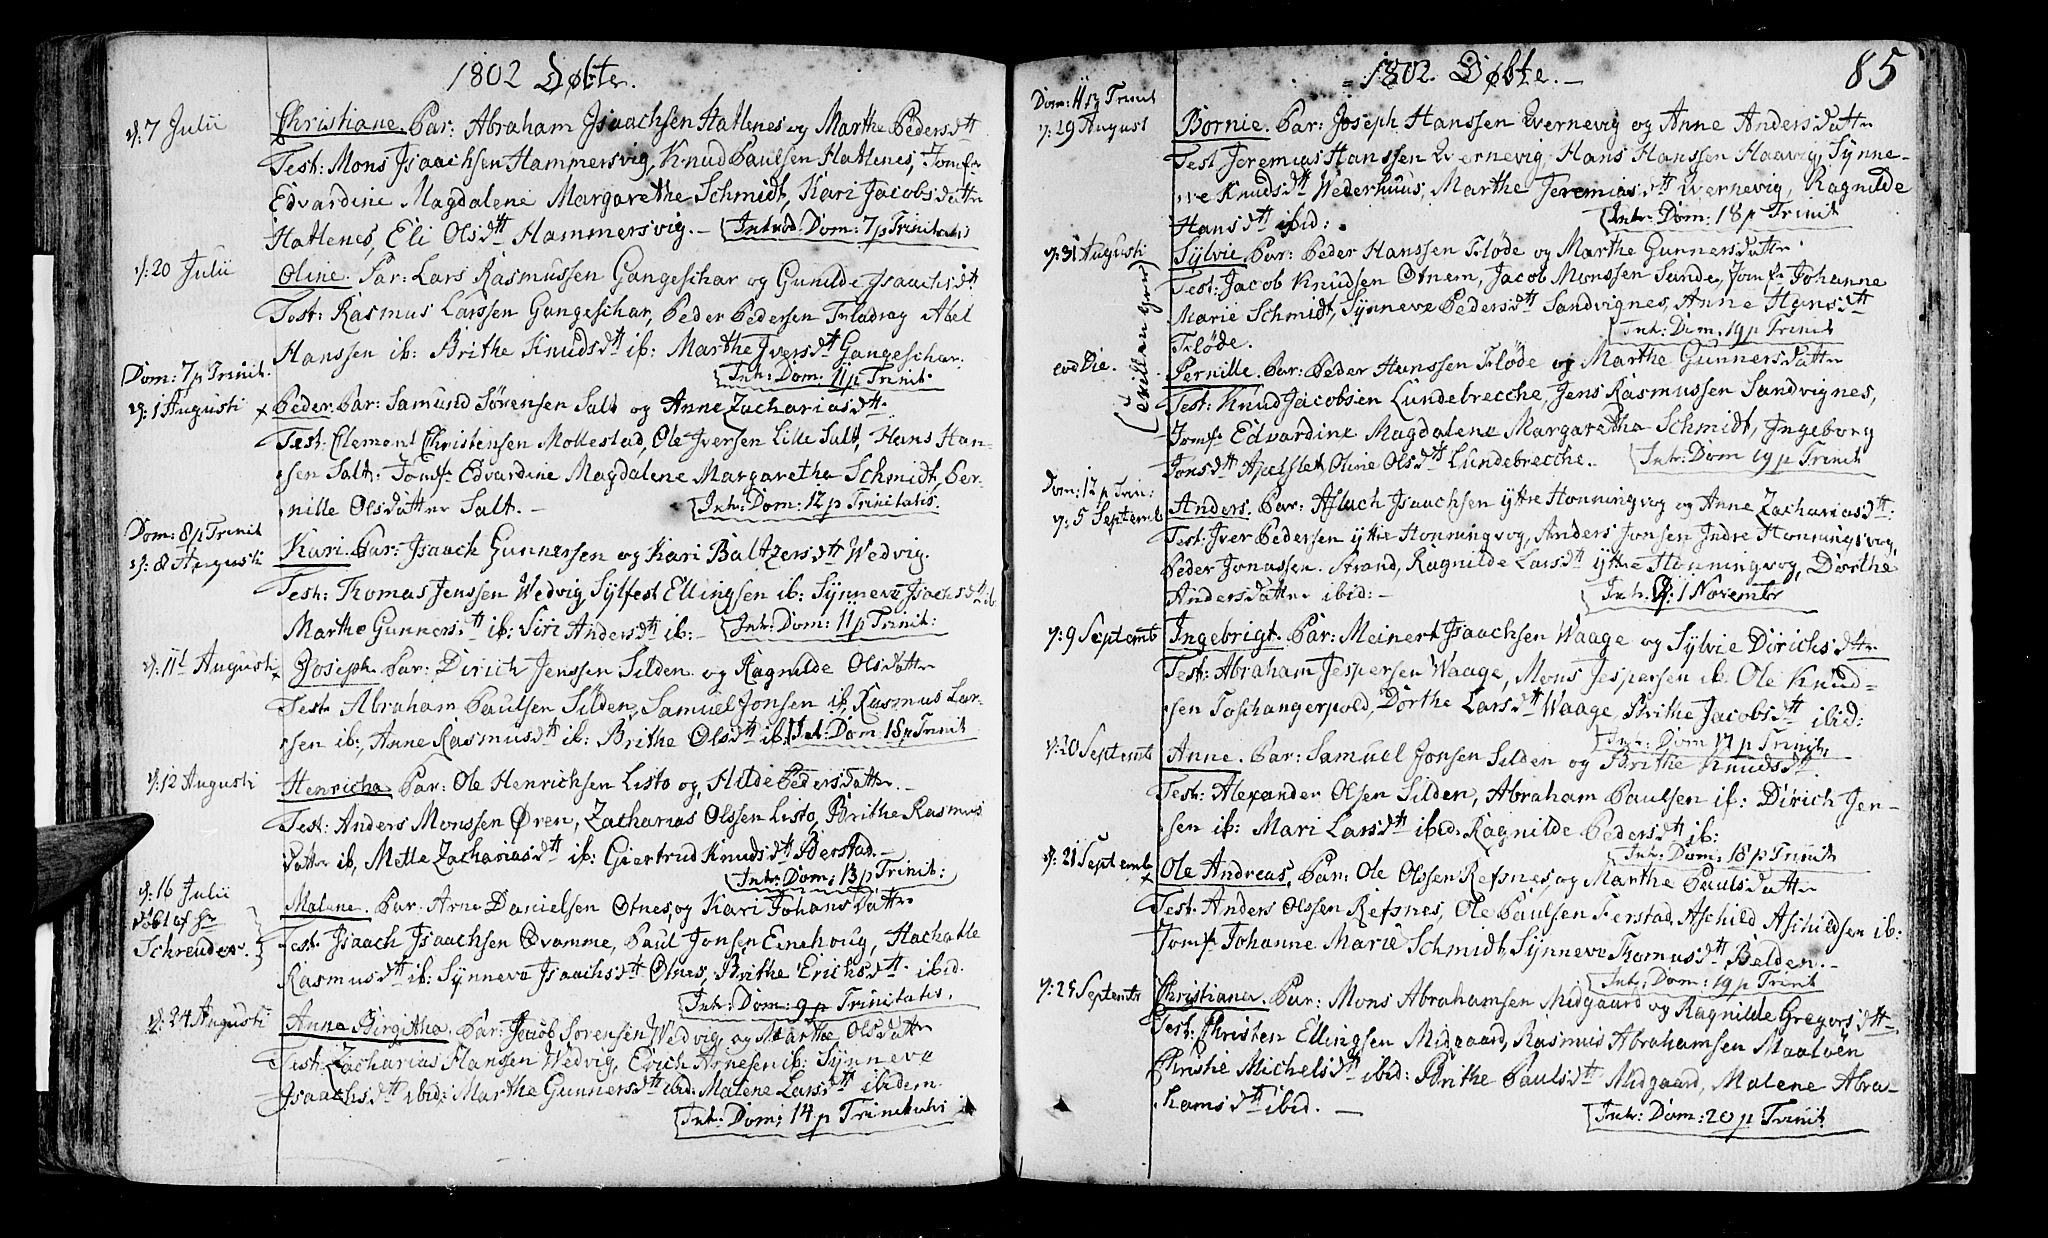 1802 Døbte.
d: 7 Julii
Christiane. Par: Abraham Isaachsen Hatlenes og Marthe Pedersdtt
Test: Mons Isaachsen Hammersvig, Knud Paulsen Hatlenes, Jomfr
Edvardine Magdalene Margarethe Schmidt, Kari Jacobsdatter
Hatlenes, Eli Olsdtt Hammersvig. – Introd: Dom: 7 p Trinitatis
d: 20 Julii
Oline. Par: Lars Rasmussen Gangeschar og Gunilde Isaachsdtt
Test: Rasmus Larssen Gangeschar, Peder Pedersen Abel
Hanssen ib: Brithe Knudsdtt ib: Marthe Iversdtt Gangeschar.
Intr: Dom: 11 p Trinit.
Dom: 7 p Trinit.
d: 1 Augusti
× Peder. Par: Samund Sørensen Salt og Anne Zachariasdtt
Test: Clement Christensen Mollestad, Ole Iversen Lille Salt, Hans Han-
sen Salt: Jomfr Edvardine Magdalene Margaretha Schmidt, Per-
nille Olsdatter Salt. –
Intr: Dom: 12 p Trinitatis.
Dom: 8 p Trinit
d: 8 Augusti
Kari. Par: Isaach Gunnersen og Kari Baltzersdtt Wedvig.
Test: Thomas Jenssen Wedvig, Sylfest Ellingsen ib: Synneve Isachsdtt ib.
Marthe Gunnersdtt ib: Siri Andersdtt ib: – Intr: Dom: 11 p Trinit:
d: 11t Augusti
× Joseph. Par: Dirich Jenssen Silden og Ragnilde Olsdatter
Test: Abraham Paulsen Silden, Samuel Jonsen ib, Rasmus Lar-
sen ib; Anne Rasmusdtt ib: Brithe Olsdtt ib: Int: Dom: 18 p Trinit
d: 12 Augusti
Henricha Par: Ole Henrichsen Listo og Hilde Pedersdatter. –
Test: Anders Monssen Øren, Zacharias Olssen Listo, Brithe Rasmus
datter ib, Mette Zachariasdtt ib: Giertrud Knudsdtt Berstad. –
Intr: Dom: 13 p Trinit:
d: 16 Julii
døbt af Hr
Schreuder.
Malene. Par: Arne Danielsen Otnes, og Kari Johansdatter
Test: Isaach Isaachsen Qvamme, Paul Jonsen Einehoug, Rachatle
Rasmusdtt ib: Synneve Isaachsdtt Otnes, Brithe Erichsdtt ibid.
Intr: Dom: 9 p Trinitatis.
d: 24 Augusti
Anne Birgitha. Par: Jacob Sørensen Wedvig, og Marthe Olsdatter
Test: Zacharias Hanssen Wedvig, Erich Arnesen ib: Synneve
Isaachsdtt ibid: Marthe Gunnersdtt ibid: Malene Larsdtt ibidem.
Intr: Dom: 14 p Trinitatis
1802. Døbte. –
85
Dom: 11 p Trinit
d: 29 August
Bornie. Par: Joseph Hanssen Qvernevig og Anne Andersdatter
Test Jeremias Hanssen Qvernevig, Hans Hanssen Haavig, Synne-
ve Knudsdtt Wederhuus, Marthe Jeremiasdtt Qvernevig, Ragnilde
Hansdtt ibid:
Intr: Dom: 18 p Trinit
d: 31 Augusti
Sylvie Par: Peder Hanssen Flöde og Marthe Gunnersdatter
Test: Jacob Knudsen Otnem, Jacob Monssen Sande, Jomfr Johanne
Marie Schmidt, Synneve Pedersdtt Sandvignes, Anne Hansdtt
Flöde.
Intr: Dom. 19 p Trinit
eod Die.
Pernille. Par: Peder Hanssen Flöde og Marthe Gunnersdatter
Test: Knud Jacobsen Lundebrecche, Jens Rasmussen Sandvignes,
Jomfr Edvardine Magdalene Margaretha Schmidt, Ingeborg
Jonsdtt Apelset, Oline Olsdtt Lundebrecche.
Intr: Dom 19 p Trinit
Dom: 12 p Trin:
d: 5 Septemb
Anders. Par: Aslach Isaachsen ytre Honningsvog og Anne Zachariasdtt
Test: Iver Pedersen ytre Honningsvog, Anders Jonsen Indre Honningsvog,
Peder Jonassen Strand, Ragnilde Larsdtt ytre Honningsvog, Dorthe
Andersdatter ibid: –
Intr. D: 1 Novembr
d: 9 Septemb
Ingebrigt. Par: Meinert Isaachsen Waage og Sylvie Dirichsdtr
Test: Abraham Jespersen Waage, Mons Jespersen ib. Ole Knud-
sen Toschangerpold, Dorthe Larsdtt Waage, Brithe Jacobsdtt ibid:
Intr: Dom 17 p Trinit
d: 20 Septemb
Anne. Par: Samuel Jonsen Silden og Brithe Knudsdtr
Test: Alexander Olsen Silden, Abraham Paulsen ib: Dirich Jen-
sen ib: Mari Larsdtt ibid: Ragnilde Pedersdtt ib:
Intr: Dom: 18 p Trinit
d: 21 Septemb
× Ole Andreas. Par: Ole Olssen Refsnes, og Marthe Paulsdatter
Test: Anders Olssen Refsnes, Ole Paulsen Ferstad, Aschild Aschildsen ib:
Jomfr Johanne Marie Schmidt, Synneve Thomasdtt Belden. –
Intr: Dom: 19 p Trinit
d: 25 Septembr
Christiane. Par: Mons Abrahamsen Midgaard og Ragnilde Gregersdtt
Test: Christen Ellingsen Midgaard, Rasmus Abrahamsen Maaløen
Christie Michelsdtt ibid: Brithe Paulsdtt Midgaard, Malene Abra-
hamsdtt ibid. –
Intr: Dom: 20 p Trinit